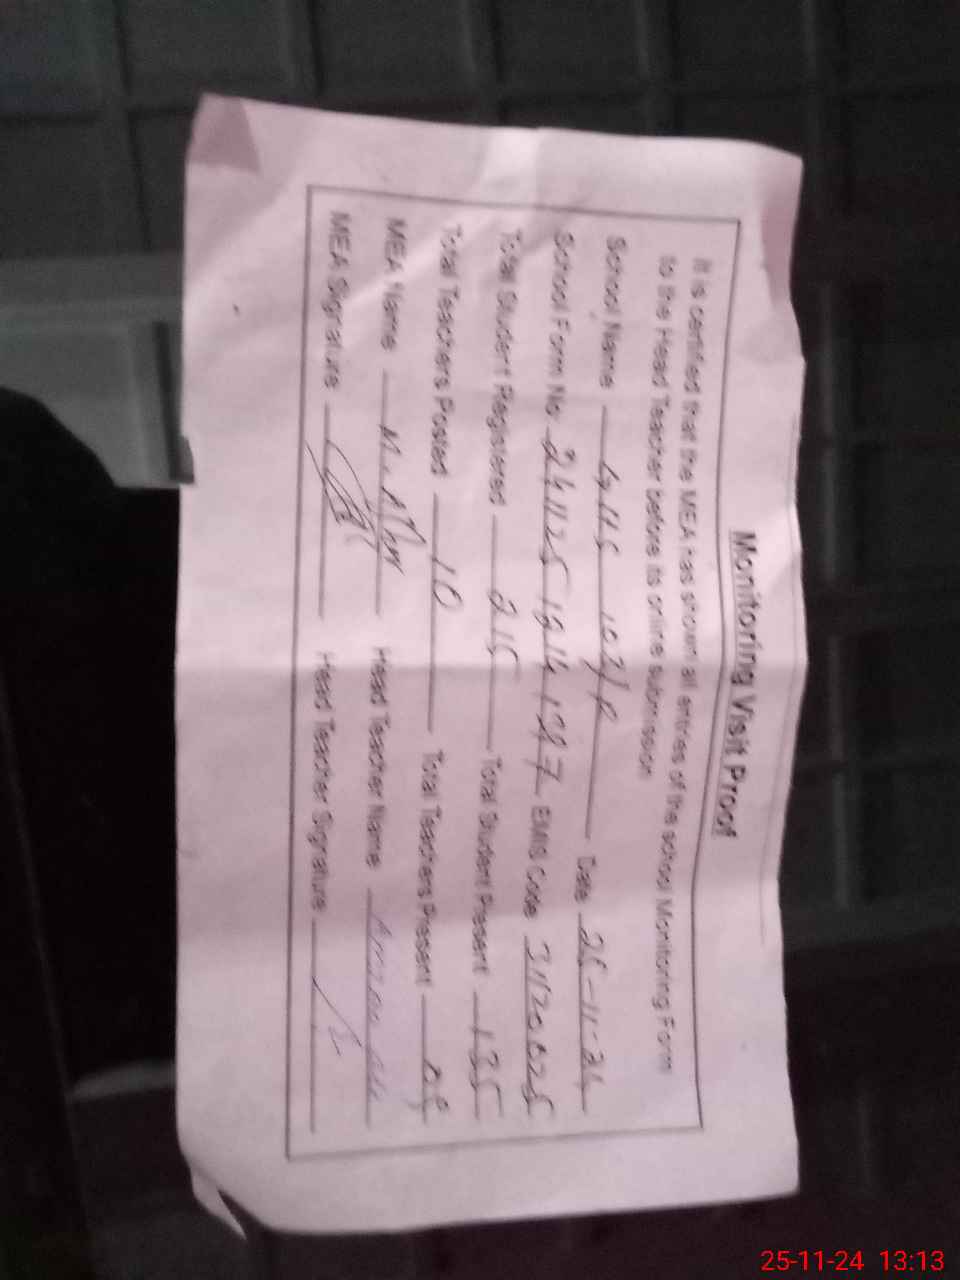 Monitoring Visit Proof
It is certified that the MEA has shown all entries of the school Monitoring Form
to the Head Teacher before its online submission
School Name GHS 107/P Date 25-11-24
School Form No. EMIS Code
Total Student Registered 215 Total Student Present 135
Total Teachers Posted 10 Total Teachers Present 08
MEA Name Head Teacher Name
MEA Signature Head Teacher Signature
25-11-24 13:13